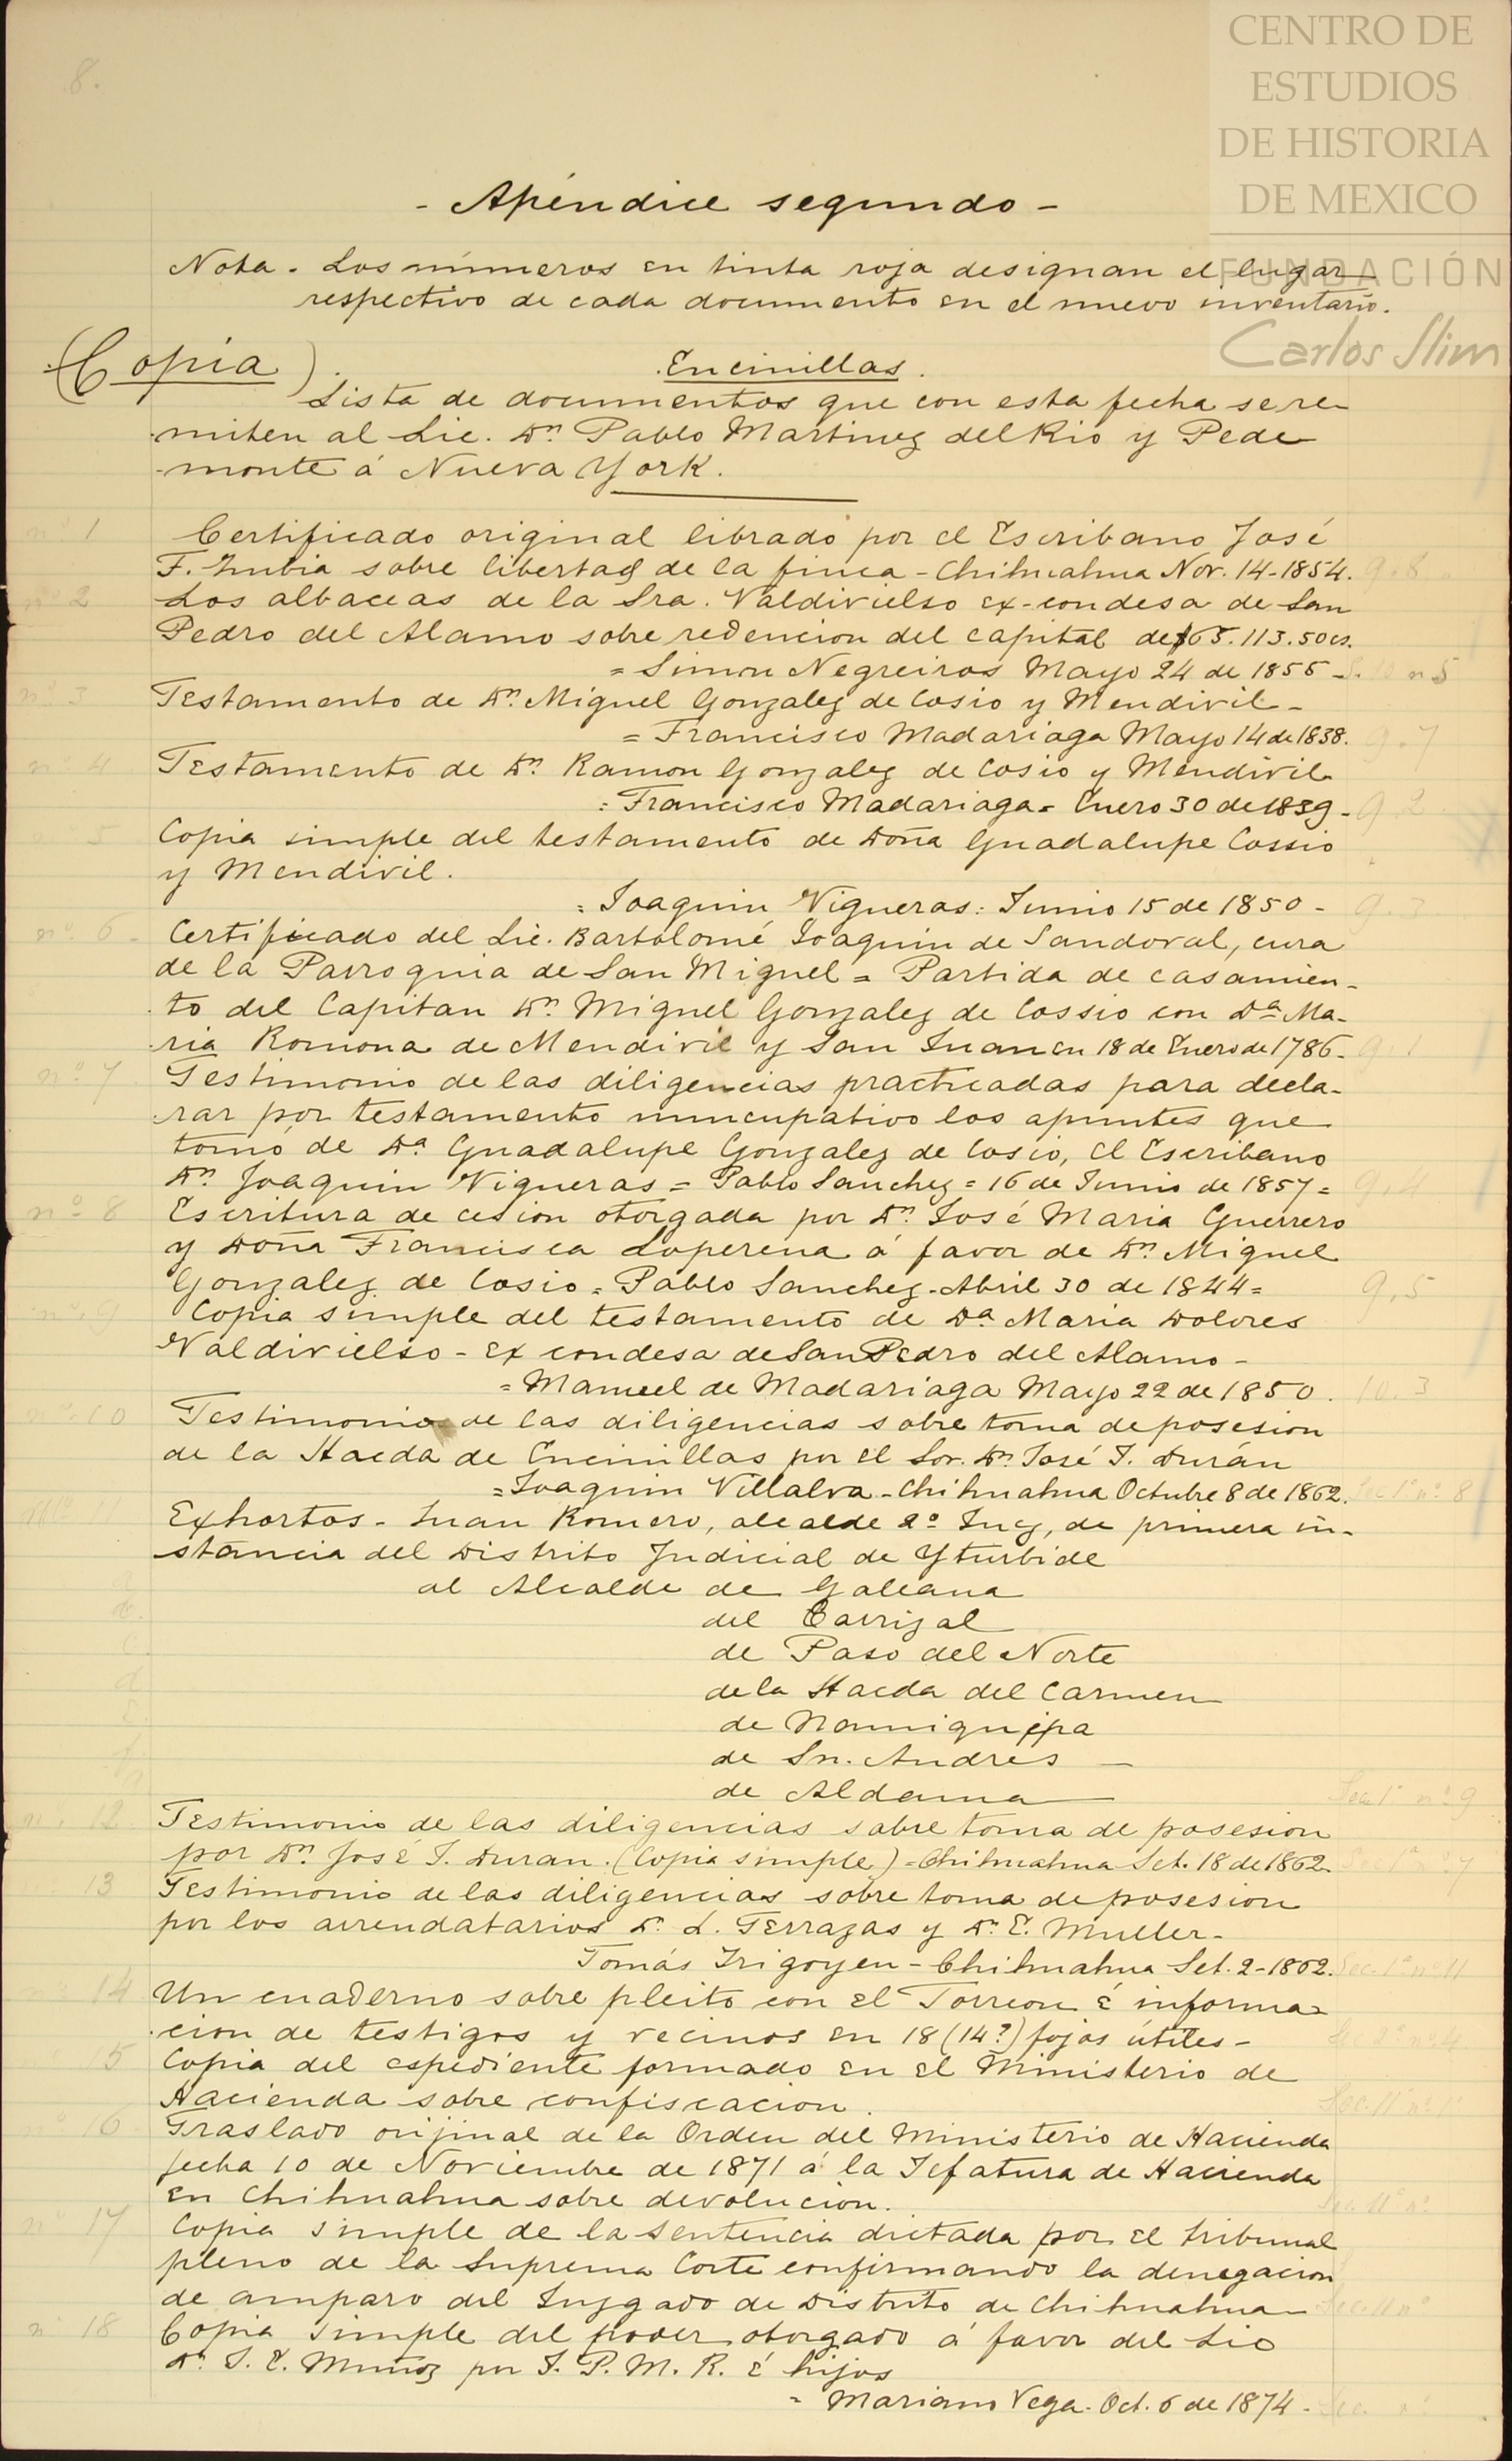 CENTRO DE
ESTUDIOS
DE HISTORIA
DE MEXICO
FUNDACIÓN
Carlos Slim
8.
- Apéndice segundo -
Nota. Los números en tinta roja designan el lugar
respectivo de cada documento en el nuevo inventario.
(Copia) Encinillas.
Lista de documentos que con esta fecha se re-
miten al Lic. Dn. Pablo Martinez del Rio y Pede
monte á Nueva York.
nº 1 Certificado original librado por el Escribano José
F. Zubia sobre libertad de la finca - Chihuahua Nov. 14-1854. 9.8
nº 2 Los albaceas de la Sra. Valdivielso ex-condesa de San
Pedro del Alamo sobre redencion del capital de $65.113.50cs.
= Simon Negreiros Mayo 24 de 1855 - n 5
nº 3 Testamento de Dn. Miguel Gonzalez de Cosio y Mendivil -
= Francisco Madariaga Mayo 14 de 1838. 9.7
nº 4 Testamento de Dn. Ramon Gonzalez de Cosio y Mendivil
= Francisco Madariaga = Enero 30 de 1839 - 9.2
5 Copia simple del testamento de Doña Guadalupe Cossio
y Mendivil.
= Joaquin Vigueras: Junio 15 de 1850 - 9.3
nº 6 - Certificado del Lic. Bartolomé Joaquin de Sandoval, cura
de la Parroquia de San Miguel = Partida de casamien-
to del Capitan Dn. Miguel Gonzalez de Cossio con Da Ma-
ria Romona de Mendivil y San Juan en 18 de Enero de 1786 - 9.1
nº 7 Testimonio de las diligencias practicadas para decla-
rar por testamento nuncupativo los apuntes que
tomó de Da Guadalupe Gonzalez de Cosio, el Escribano
Dn. Joaquin Vigueras = Pablo Sanchez = 16 de Junio de 1857 = 9.4
nº 8 Escritura de cesion otorgada por Dn. José Maria Guerrero
y Doña Francisca Loperena á favor de Dn. Miguel
Gonzalez de Cosio = Pablo Sanchez - Abril 30 de 1844 = 9.5
nº 9 Copia simple del testamento de Da Maria Dolores
Valdivielso - ex condesa de San Pedro del Alamo -
= Manuel de Madariaga Mayo 22 de 1850. 10.3
nº 10 Testimonio de las diligencias sobre toma de posesion
de la Hacda de Encinillas por el Sor. Dn. José J. Durán
= Joaquin Villalva - Chihuahua Octubre 8 de 1862. Sec 1ª nº 8
Exhortos - Juan Romero, alcalde 2º Juez, de primera in-
stancia del Distrito Judicial de Yturbide
al Alcalde de Galeana
del Carrizal
de Paso del Norte
de la Hacda del Carmen
de Namiquipa
de Sn. Andres
de Aldama Sec 1ª nº 9
n. 12 Testimonio de las diligencias sobre toma de posesion
por Dn. José J. Duran. (Copia simple) = Chihuahua Set. 18 de 1862.
13 Testimonio de las diligencias sobre toma de posesion
por los arrendatarios D. L. Terrazas y D. E. Muller -
Tomás Irigoyen - Chihuahua Set. 2 - 1862. Sec. 1ª nº 11
14 Un cuaderno sobre pleito con el Torreon é informa-
cion de testigos y vecinos en 18 (14?) fojas útiles -
15 Copia del espediente formado en el Ministerio de
Hacienda sobre confiscacion.
nº 16 Traslado orijinal de la Orden del Ministerio de Hacienda
fecha 10 de Noviembre de 1871 á la Jefatura de Hacienda
en Chihuahua sobre devolucion.
n 17 Copia simple de la sentencia dictada por el tribunal
pleno de la Suprema Corte confirmando la denegacion
de amparo del Juzgado de Distrito de Chihuahua -
nº 18 Copia simple del poder otorgado á favor del Lic
D. J. E. Muñoz por J. P. M. R. é hijos
= Mariano Vega. Oct. 6 de 1874.